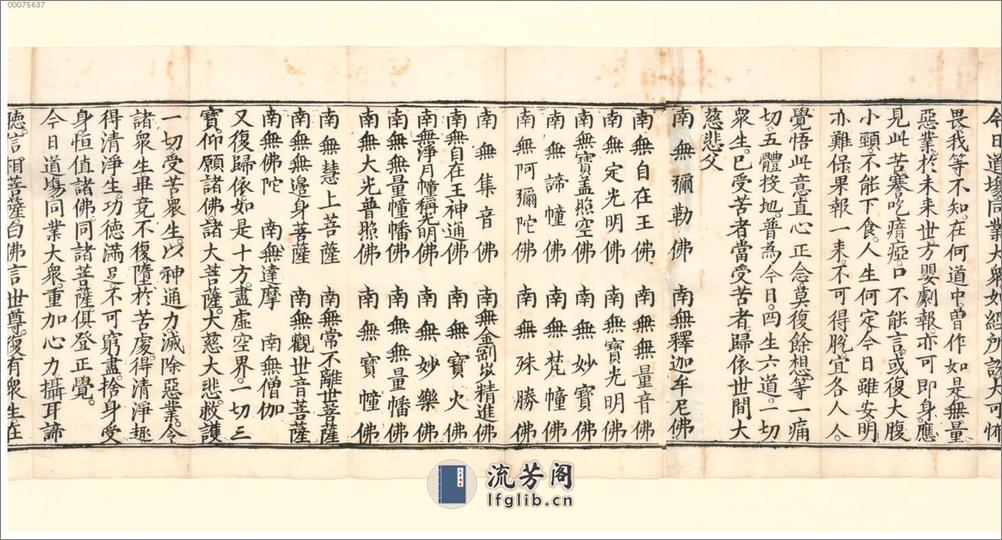 00075637
今日道場同業大衆如經所說大可怖
畏我等不知在何道中曾作如是無量
惡業於未來世方嬰劇報亦可即身應
見此苦蹇吃瘖瘂口不能言或復大腹
小頸不能下食人生何定今日雖安明
亦難保果報一来不可得脫宜各人人
覺悟此意直心正念莫復餘想等一痛
切五體投地普為今日四生六道一切
衆生已受苦者當受苦者歸依世間大
慈悲父
南無彌勒佛 南無釋迦牟尼佛
南無自在王佛 南無無量音佛
南無定光明佛 南無寶光明佛
南無寶盖照空佛 南無妙寶佛
南無諦幢佛 南無梵幢佛
南無阿彌陀佛 南無殊勝佛
南無集音佛 南無金剛步精進佛
南無自在王神通佛 南無寶火佛
南無淨月幢稱光明佛 南無妙樂佛
南無無量幢幡佛 南無無量幡佛
南無大光普照佛 南無寶幢佛
南無慧上菩薩 南無常不離世菩薩
南無無邊身菩薩 南無觀世音菩薩
南無佛陀 南無達摩 南無僧伽
又復歸依如是十方盡虛空界一切三
寶仰願諸佛諸大菩薩大慈大悲救護
一切受苦衆生以神通力滅除惡業令
諸衆生畢竟不復墮於苦處得清淨趣
得清淨生功德滿足不可窮盡捨身受
身恒值諸佛同諸菩薩俱登正覺
今日道塲同業大衆重加心力攝耳諦
聽信相菩薩白佛言世尊復有衆生在
流芳阁
lfglib.cn